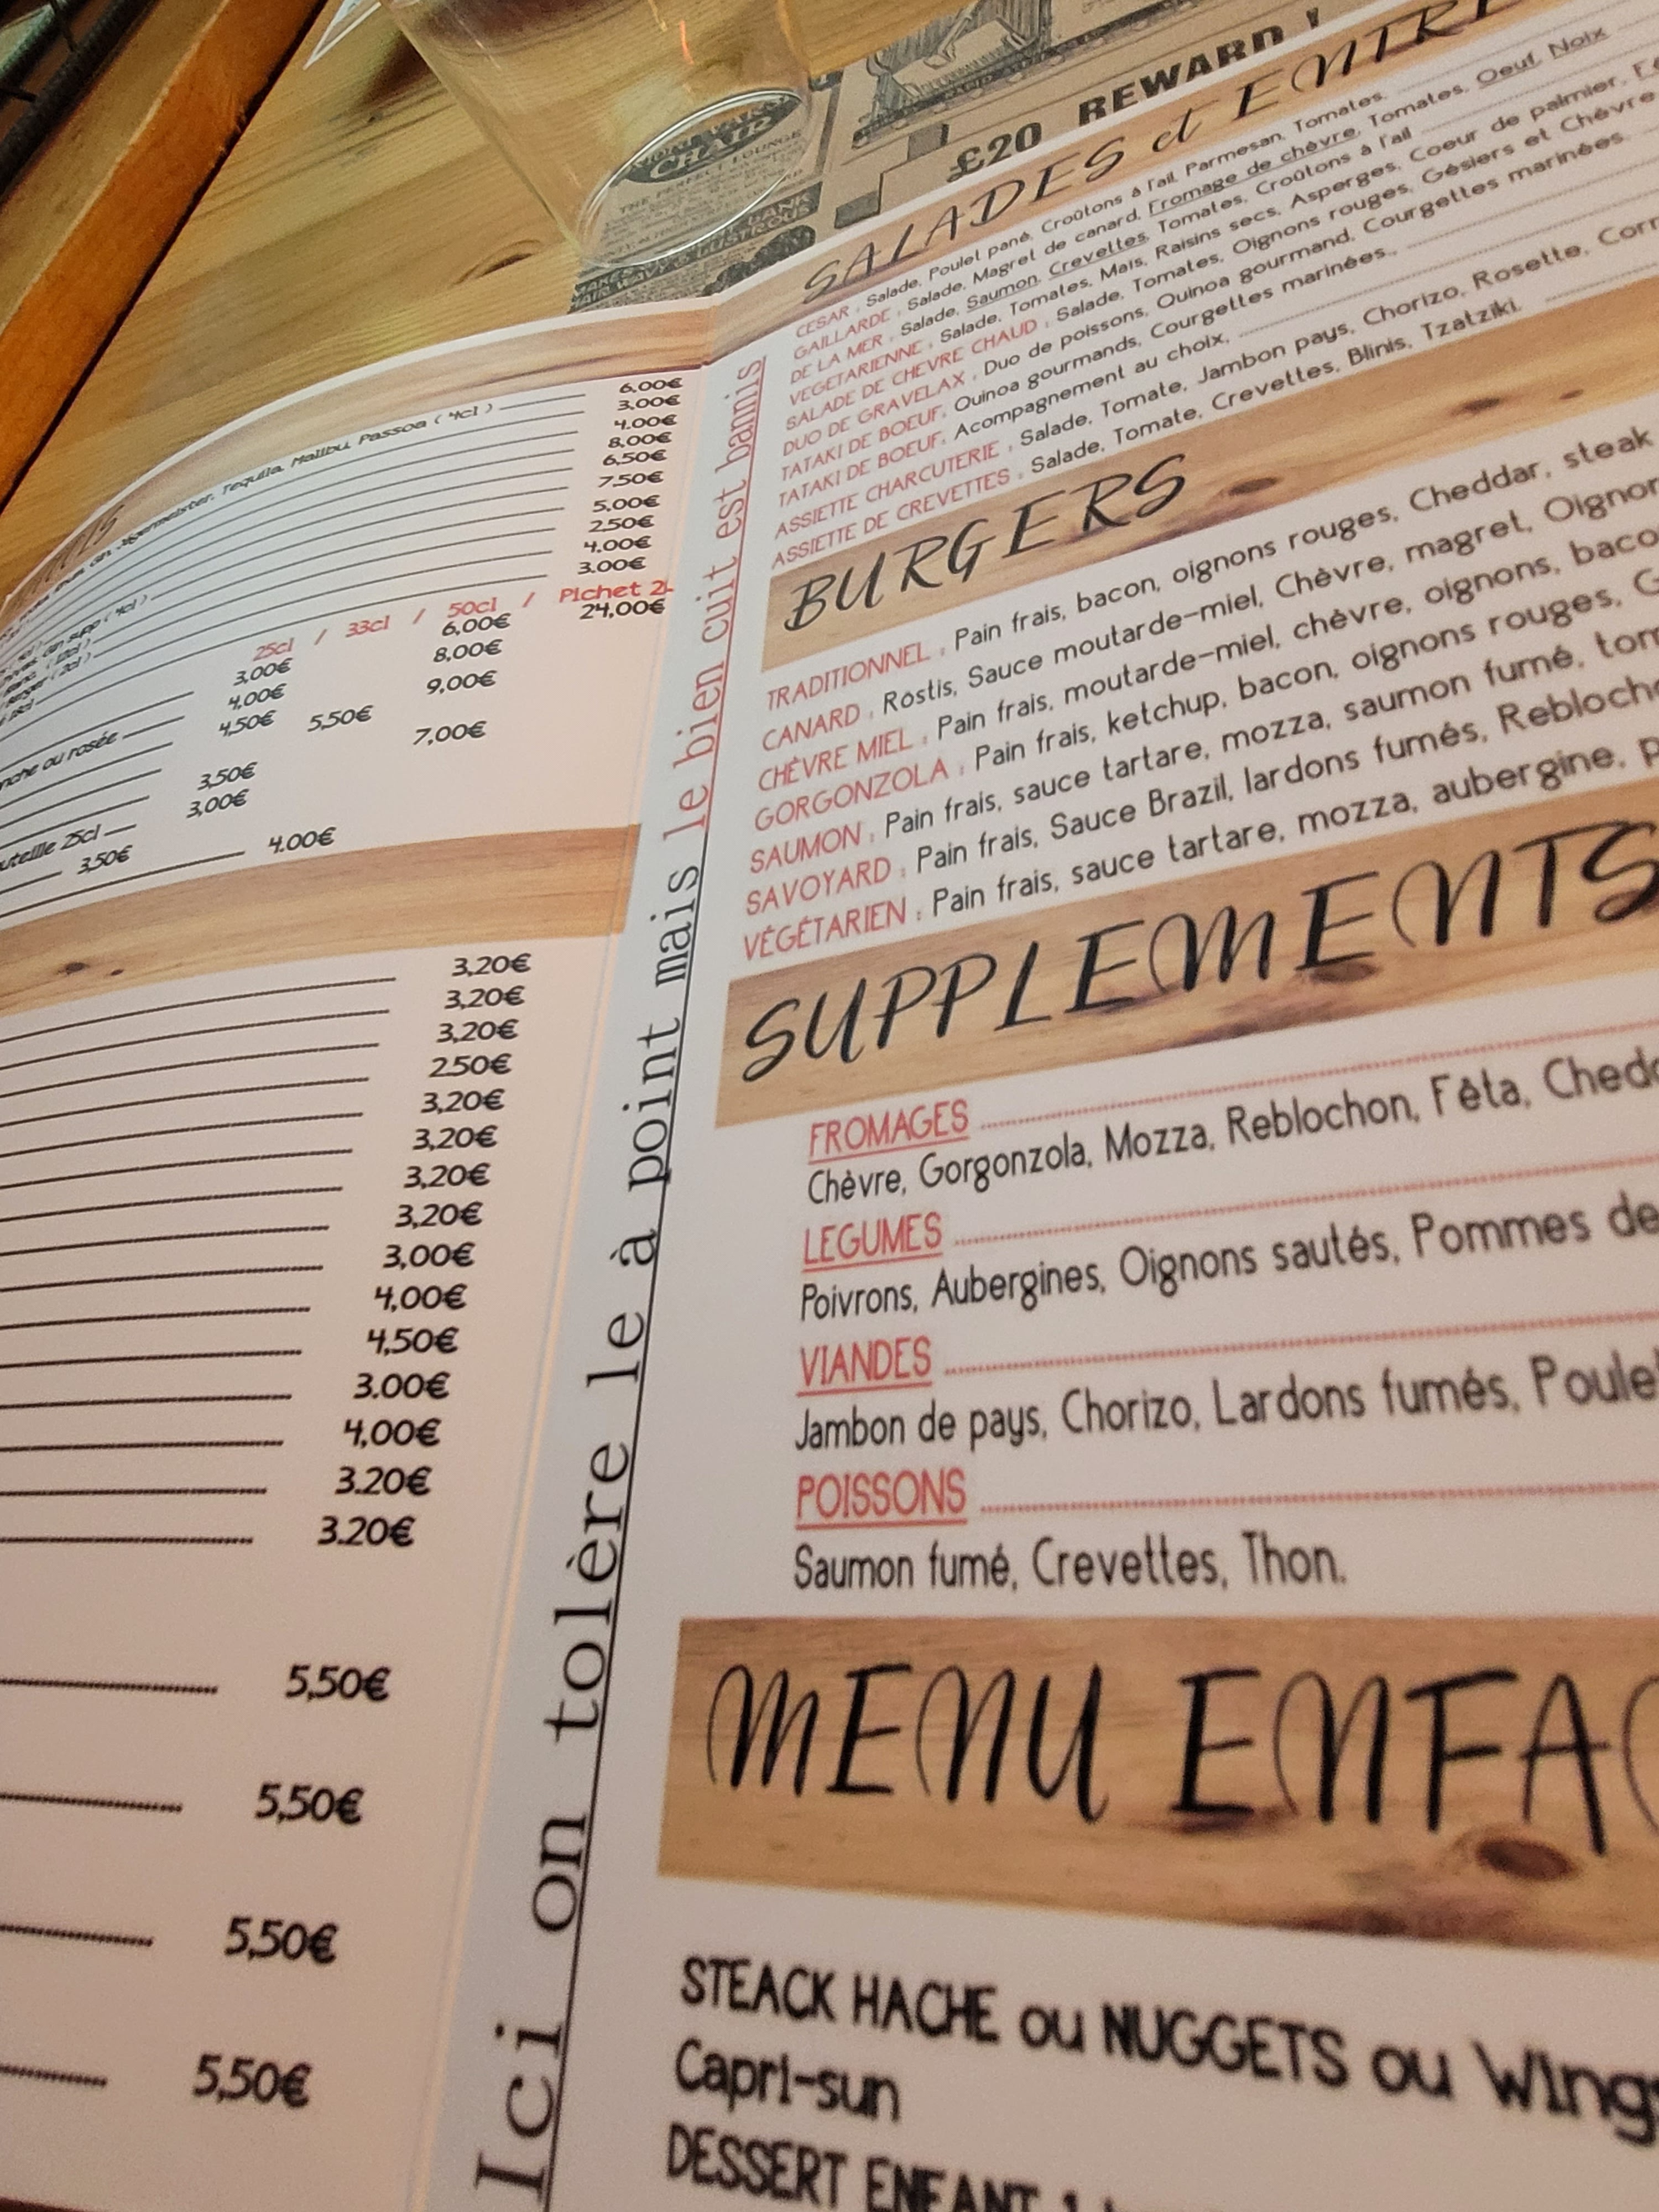 £20 REWARD !
CHAIR
SALADES et ENTRE
CESAR : Salade, Poulet pané, Croûtons à l'ail, Parmesan, Tomates.
GAILLARDE : Salade, Magret de canard, Fromage de chèvre, Tomates, Oeuf, Noix
DE LA MER : Salade, Saumon, Crevettes, Tomates, Croûtons à l'ail
VEGETARIENNE : Salade, Tomates, Maïs, Raisins secs, Asperges, Coeur de palmier,
SALADE DE CHEVRE CHAUD : Salade, Tomates, Oignons rouges, Gésiers et Chèvre
DUO DE GRAVELAX : Duo de poissons, Quinoa gourmand, Courgettes marinées.
TATAKI DE BOEUF, Quinoa gourmands, Courgettes marinées.
TATAKI DE BOEUF, Acompagnement au choix,
ASSIETTE CHARCUTERIE : Salade, Tomate, Jambon pays, Chorizo, Rosette, Corn
ASSIETTE DE CREVETTES : Salade, Tomate, Crevettes, Blinis, Tzatziki.
BURGERS
TRADITIONNEL : Pain frais, bacon, oignons rouges, Cheddar, steak
CANARD : Röstis, Sauce moutarde-miel, Chèvre, magret, Oignon
CHÈVRE MIEL : Pain frais, moutarde-miel, chèvre, oignons, baco
GORGONZOLA : Pain frais, ketchup, bacon, oignons rouges, G
SAUMON : Pain frais, sauce tartare, mozza, saumon fumé, tom
SAVOYARD : Pain frais, Sauce Brazil, lardons fumés, Rebloch
VÉGÉTARIEN : Pain frais, sauce tartare, mozza, aubergine, p
SUPPLEMENTS
FROMAGES
Chèvre, Gorgonzola, Mozza, Reblochon, Fêta, Chedd
LEGUMES
Poivrons, Aubergines, Oignons sautés, Pommes de
VIANDES
Jambon de pays, Chorizo, Lardons fumés, Poulet
POISSONS
Saumon fumé, Crevettes, Thon.
MENU ENFA
STEACK HACHE ou NUGGETS ou Wings
Capri-sun
DESSERT ENFANT
Ici on tolère le à point mais le bien cuit est bannis
Jagermeister, Tequila, Malibu, Passoa ( 4cl ) 6,00€
3,00€
4,00€
8,00€
6,50€
7,50€
5,00€
2,50€
4,00€
3,00€
25cl / 33cl / 50cl / Pichet 2L
3,00€ 6,00€ 24,00€
4,00€ 8,00€
4,50€ 5,50€ 9,00€
7,00€
3,50€
3,00€
3,50€
4,00€
3,20€
3,20€
3,20€
2,50€
3,20€
3,20€
3,20€
3,20€
3,00€
4,00€
4,50€
3.00€
4,00€
3.20€
3.20€
5,50€
5,50€
5,50€
5,50€